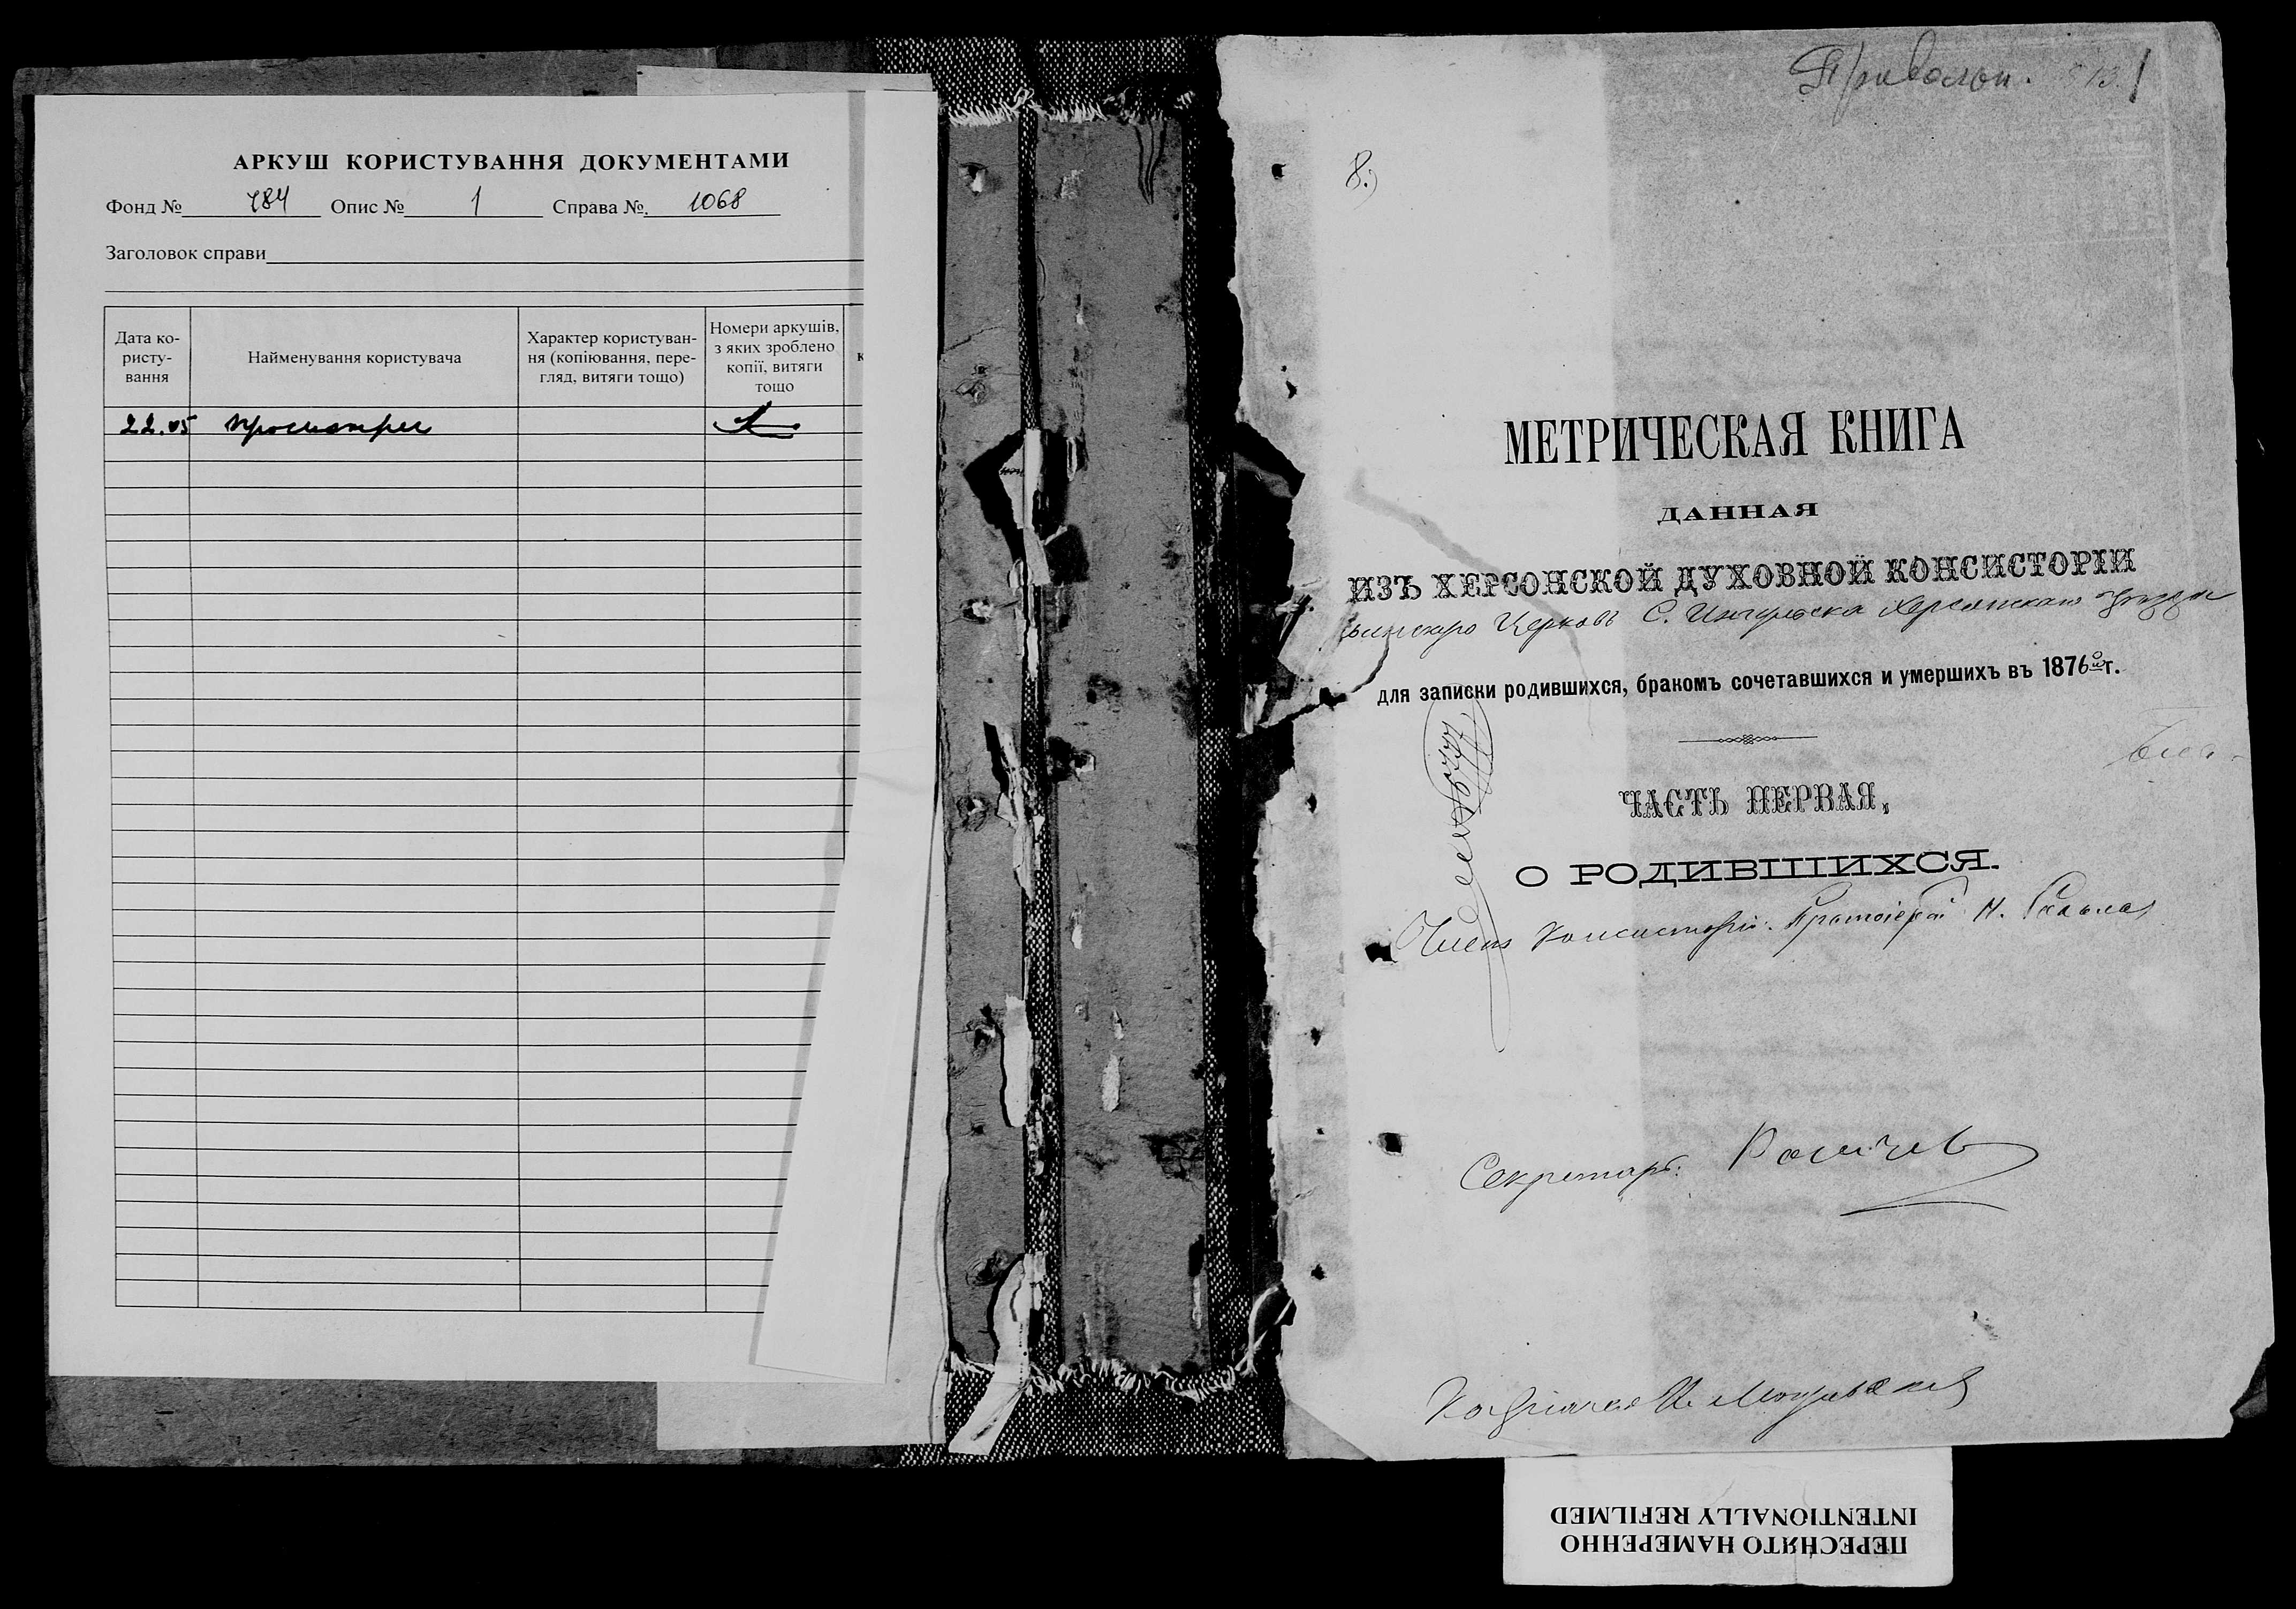 АРКУШ КОРИСТУВАННЯ ДОКУМЕНТАМИ
Фонд № 484 Опис № 1 Справа № 1068
Заголовок справи
Дата ко-
ристу-
вання
Найменування користувача
Характер користуван-
ня (копіювання, пере-
гляд, витяги тощо)
Номери аркушів,
з яких зроблено
копії, витяги
тощо
к
22.05
8.)
1
МЕТРИЧЕСКАЯ КНИГА
ДАННАЯ
ИЗЪ ХЕРСОНСКОЙ ДУХОВНОЙ КОНСИСТОРІИ
Церковь С. Ингульска Херсонскаго уѣзда
для записки родившихся, бракомъ сочетавшихся и умершихъ въ 1876 г.
ЧАСТЬ ПЕРВАЯ,
О РОДИВШИХСЯ.
Членъ Консисторіи: Протоіерей Н.
Секретарь:
ПЕРЕСНЯТО НАМЕРЕННО
INTENTIONALLY REFILMED